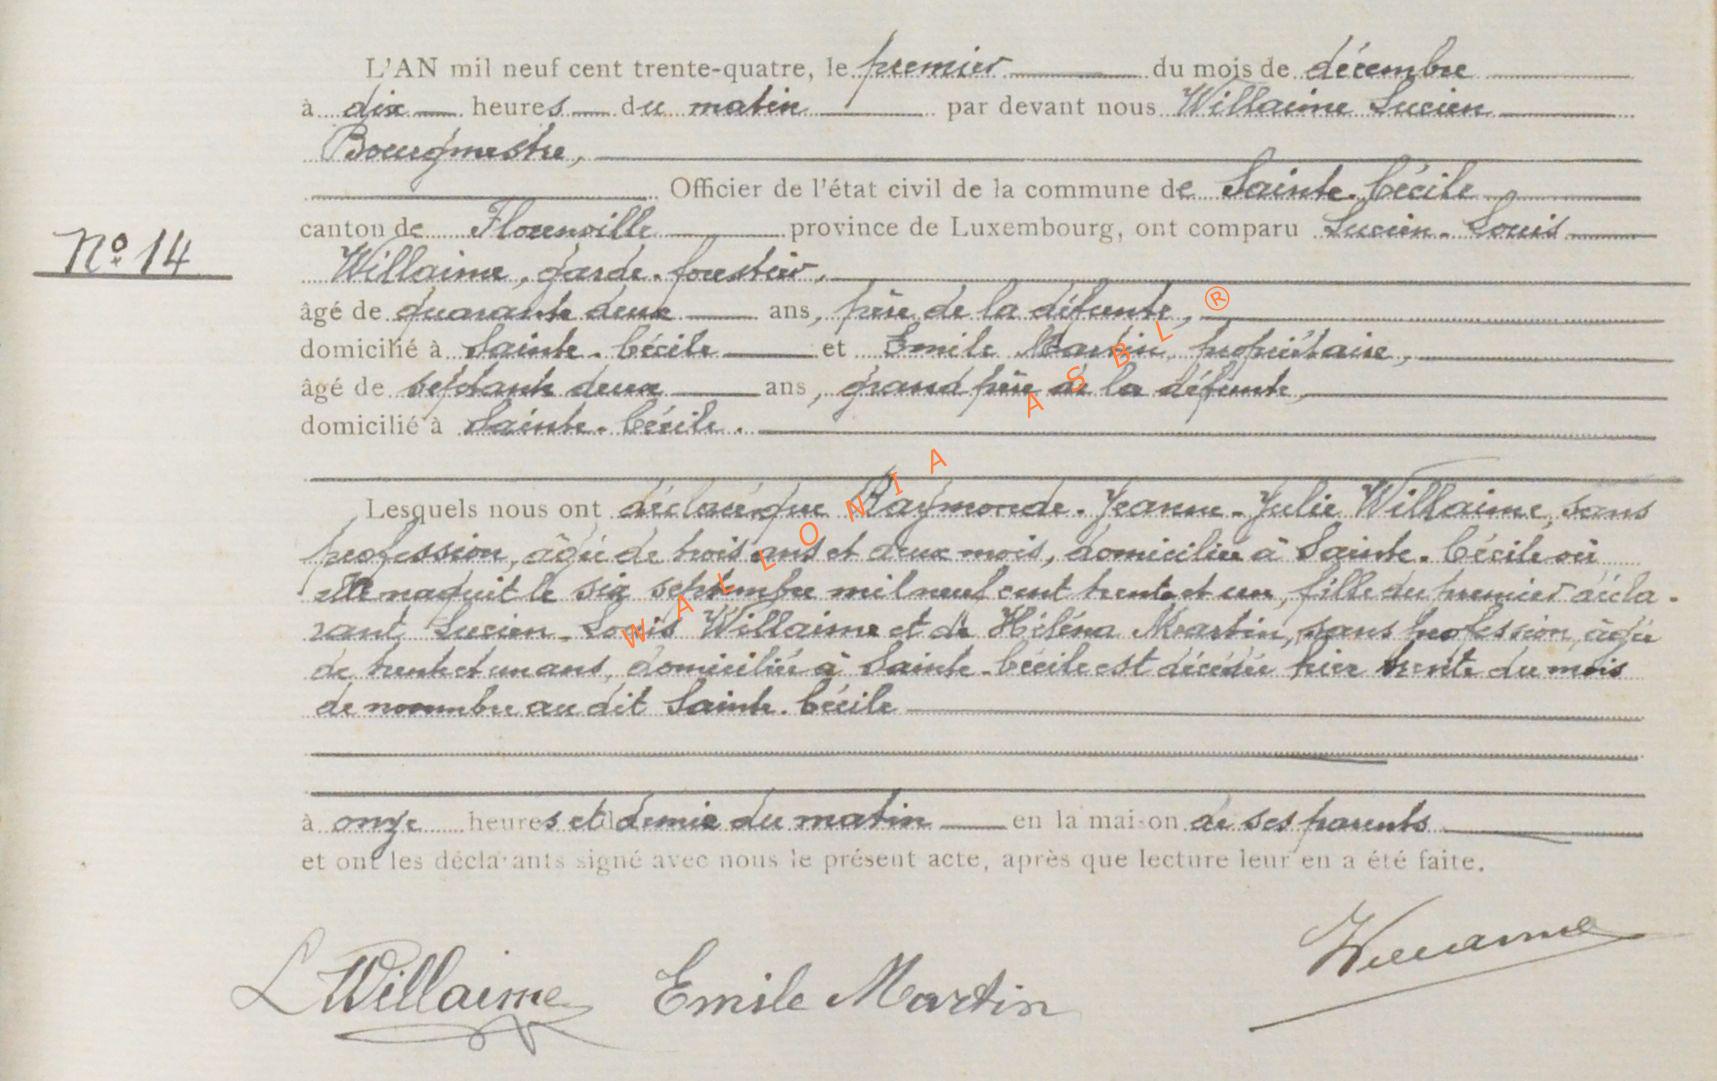 L'AN mil neuf cent trente-quatre, le premier du mois de décembre
à dix heures du matin par devant nous Willaime Lucien
Bourgmestre,
Officier de l'état civil de la commune de Sainte-Cécile
canton de Florenville province de Luxembourg, ont comparu Lucien-Louis
Nº 14
Willaime, garde-forestier,
âgé de quarante deux ans, père de la défunte,
domicilié à Sainte-Cécile et Emile Martin, propriétaire,
âgé de septante deux ans, grand père de la défunte,
domicilié à Sainte-Cécile.
WALLONIA ASBL ®
Lesquels nous ont déclaré que Raymonde-Jeanne-Julie Willaime, sans
profession, âgée de trois ans et deux mois, domiciliée à Sainte-Cécile où
elle naquit le six septembre mil neuf cent trente et un, fille du premier décla-
rant Lucien-Louis Willaime et de Héléna Martin, sans profession, âgée
de trente et un ans, domiciliée à Sainte-Cécile est décédée hier trente du mois
de novembre au dit Sainte-Cécile
à onze heures et demie du matin en la maison de ses parents
et ont les déclarants signé avec nous le présent acte, après que lecture leur en a été faite.
L Willaime Emile Martin Willaime